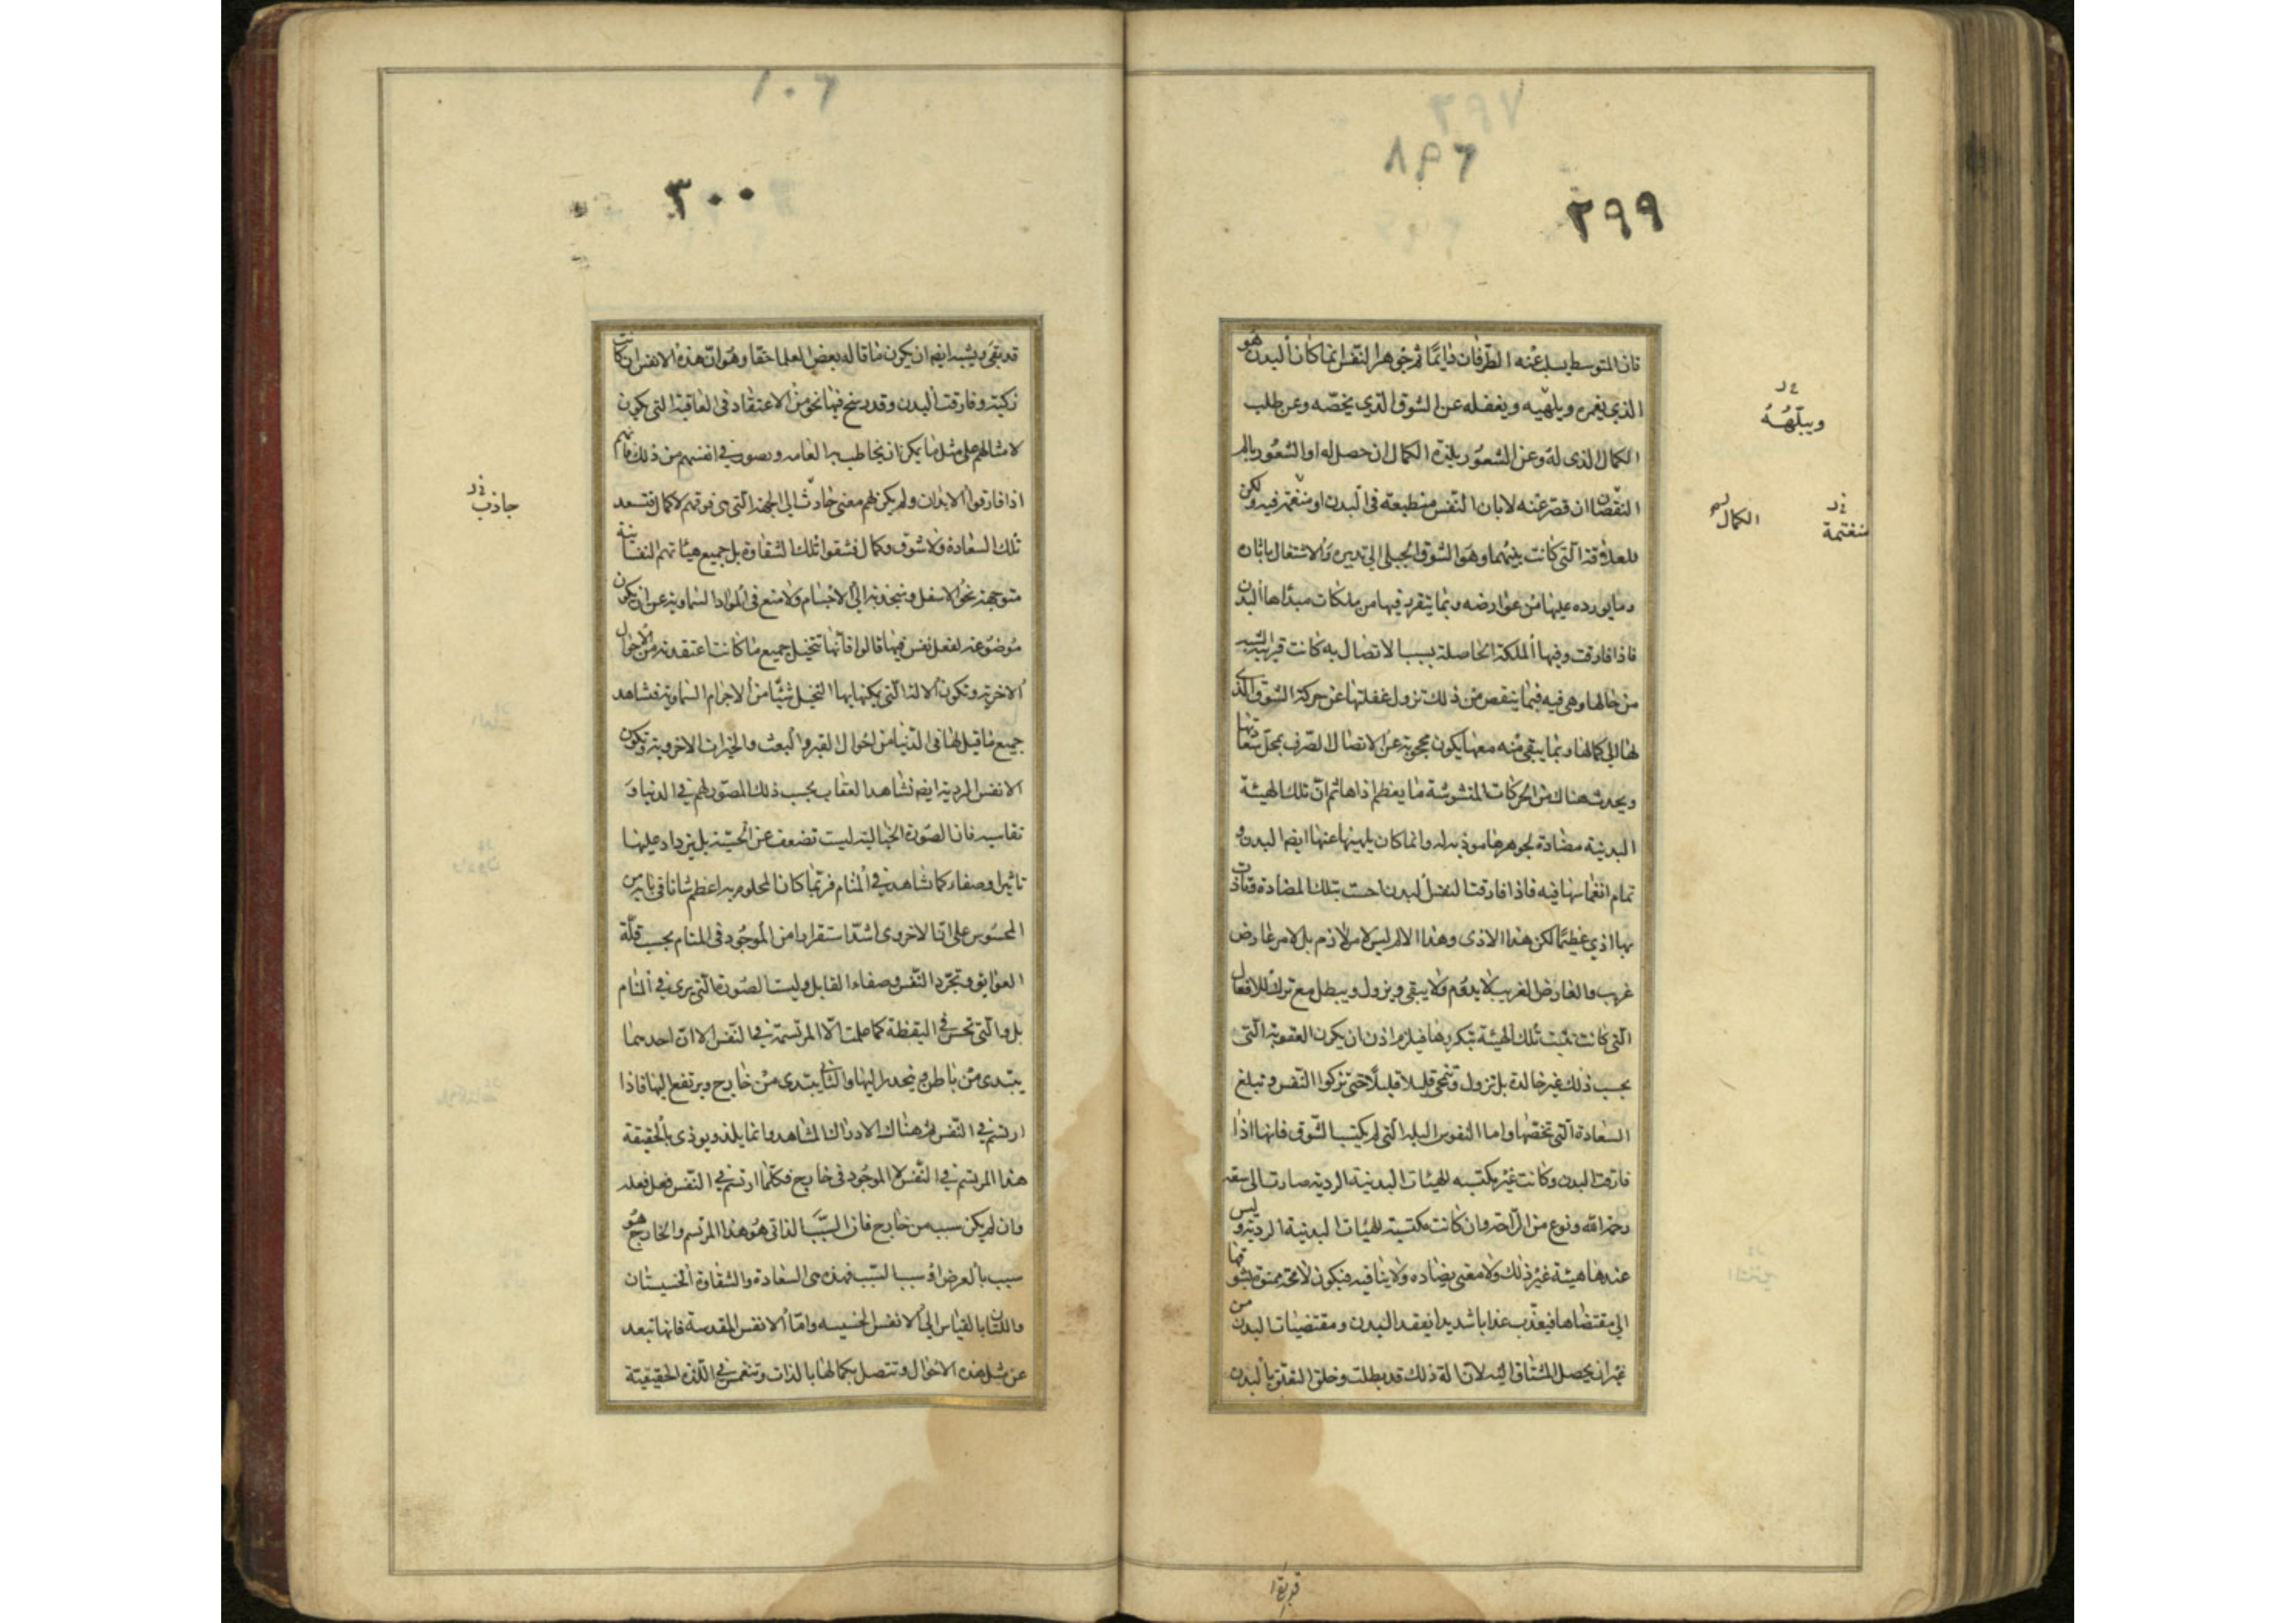 ٢٩٧
٨٩٦
٢٩٩
فان المتوسط يسلب عنه الطرفان دايما ثم جوهر النفس انما كان البدن هو
الذي يغمره ويلهيه ويغفله عن الشوق الذي يخصه وعن طلب
الكمال الذى له وعن الشعور بلذة الكمال ان حصل له او الشعور بالم
النقصان ان قصر عنه لا بان النفس منطبعه فى البدن او منغمر فيه ولكن
للعلاقة التى كانت بينهما وهو الشوق الجبلى الى تدبيره والاشتغال باثاره
وما يورده عليها من عوارضه وبما يتقرر فيها من ملكات مبداها البدن
فاذا فارقت وفيها الملكة الحاصلة بسبب الاتصال به كانت قريبة الشبه
من حالها وهى فيه فبما ينقص من ذلك تزول غفلتها عن حركة الشوق الذى
لها الى كمالها وبما يبقى منه معها يكون محجوبة عن الاتصال الصرف بمحل سعادتها
ويحدث هناك من الحركات المتشوشة ما يعظم اذاها ثم ان تلك الهيئة
البدنية مضادة لجوهرها موذية له وانما كان يلهيها عنها ايضا البدن و
تمام انغماسها فيه فاذا فارقت النفس البدن احست بتلك المضادة وتاذت
بها اذي عظيما لكن هذا الاذى وهذا الالم ليس لامر لازم بل لامر عارض
غريب والعارض الغريب لا يدوم ولا يبقى ويزول ويبطل مع ترك الافعال
التى كانت تثبت تلك الهيئة بتكررها فيلزم اذن ان يكون العقوبة التى
بحسب ذلك غير خالدة بل تزول وتنمحى قليلا قليلا حتى تزكوا النفس وتبلغ
السعادة التى تخصها واما النفوس البله التى لم يكتسب الشوق فانها اذا
فارقت البدن وكانت غير مكتسبه للهيئات البدنية الردية صارت الى سعة
رحمة الله ونوع من الراحة وان كانت مكتسبة للهيئات البدنية الردية وليس
عندها هيئة غير ذلك ولا معنى يضاده ولا ينافيه فيكون لا محة ممنوة بشوقها
الى مقتضاها فيعذب عذابا شديدا بفقد البدن ومقتضيات البدن من
غير ان يحصل المشتاق اليه لان الة ذلك قد بطلت وخلق التعلق بالبدن
ويبلهه
منغتمة
الكمال
١٠٦
٣٠٠
قد بقى ويشبه ايضا ان يكون ما قاله بعض العلما حقا وهو ان هذه الانفس ان كانت
زكية وفارقت البدن وقد رسخ فيها نحو من الاعتقاد فى العاقبة التى يكون
لامثالهم على مثل ما يمكن ان يخاطب به العامه وتصور في انفسهم من ذلك فانهم
اذا فارقوا الابدان ولم يكن لهم معنى جاذب الى الجهة التى هى فوقهم لا كمال فتسعد
تلك السعادة ولا شوق وكمال فشقوا تلك الشقاوة بل جميع هيئاتهم النفسانية
متوجهة نحو الاسفل ومنجذبة الى الاجسام ولا منع فى المواد السماوية عن ان يكون
موضوعة لفعل نفس فيها قالوا فانها تتخيل جميع ما كانت اعتقدته من الاحوال
الاخرية وتكون الالة التى يمكنها بها التخيل شيئا من الاجرام السماوية فتشاهد
جميع ما قيل لها فى الدنيا من احوال القبر والبعث والخيرات الاخروية وتكون
الانفس الردية ايضا تشاهد العقاب بحسب ذلك المصور لهم في الدنيا و
تقاسيه فان الصورة الخياليه ليست تضعف عن الحسية بل يزداد عليها
تاثيرا وصفاء كما تشاهد في المنام فربما كان المحلوم به اعظم شانا فى بابه من
المحسوس على ان الاخروى اشد استقرارا من الموجود فى المنام بحسب قلة
العوايق وتجرد النفس وصفاء القابل وليست الصورة التى يرى في المنام
بل والتى تحس في اليقظة كما علمت الا المرتسمة في النفس الا ان احديهما
يبتدى من باطن وينحدر اليها والثانى يبتدى من خارج ويرتفع اليها فاذا
ارتسم في النفس تم هناك الادراك المشاهد وانما يلذ ويوذى بالحقيقة
هذا المرتسم في النفس لا الموجود فى خارج فكلما ارتسم في النفس فعل فعله
وان لم يكن سبب من خارج فان السبب الذاتى هو هذا المرتسم والخارج هو
سبب بالعرض او سبب السبب فهذه هى السعادة والشقاوة الخسيستان
واللتان بالقياس الى الانفس الخسيسه واما الانفس المقدسة فانها تبعد
عن مثل هذه الاحوال وتتصل بكمالها بالذات وتنغمس في اللذة الحقيقية
جاذب